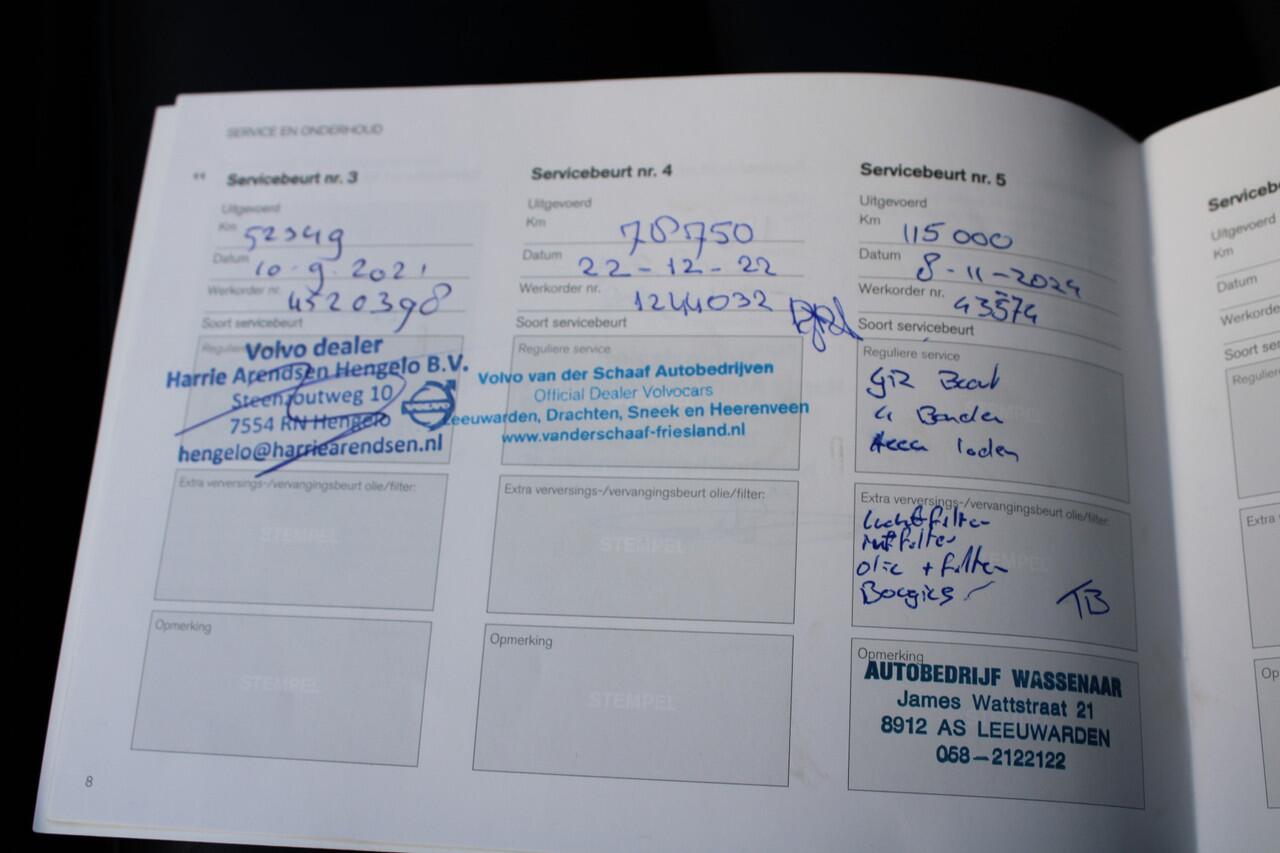 SERVICE EN ONDERHOUD
Servicebeurt nr. 3
Uitgevoerd
Km 52349
Datum 10-9-2021
Werkorder nr. 4520398
Soort servicebeurt
Reguliere
Volvo dealer
Harrie Arendsen Hengelo B.V.
Steenzoutweg 10
7554 RN Hengelo
hengelo@harriearendsen.nl
Extra verversings-/vervangingsbeurt olie/filter:
STEMPEL
Opmerking
STEMPEL
8
Servicebeurt nr. 4
Uitgevoerd
Km 78750
Datum 22-12-22
Werkorder nr. 1244032
Soort servicebeurt
Reguliere service
Volvo van der Schaaf Autobedrijven
Official Dealer Volvocars
Leeuwarden, Drachten, Sneek en Heerenveen
www.vanderschaaf-friesland.nl
Extra verversings-/vervangingsbeurt olie/filter:
STEMPEL
Opmerking
STEMPEL
Servicebeurt nr. 5
Uitgevoerd
Km 115000
Datum 8-11-2024
Werkorder nr. 43574
Soort servicebeurt
Reguliere service
Beurt
4 Banden
Airco laden
Extra verversings-/vervangingsbeurt olie/filter:
Luchtfilter
filter
olie + filter
Bougies
TB
Opmerking
AUTOBEDRIJF WASSENAAR
James Wattstraat 21
8912 AS LEEUWARDEN
058-2122122
Uitgevoerd
Km
Datum